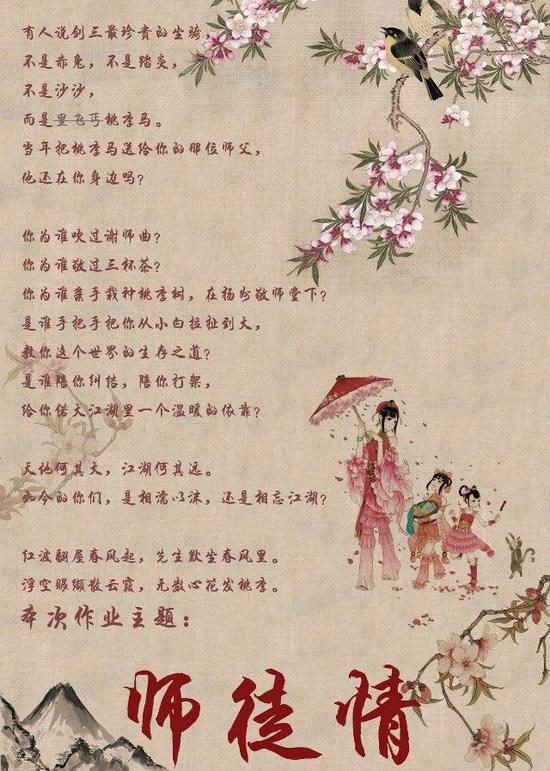 有人说剑三最珍贵的坐骑，
不是赤兔，不是踏炎，
不是沙沙，
而是里飞丐桃李马。
当年把桃李马送给你的那位师父，
他还在你身边吗？
你为谁吹过谢师曲？
你为谁敬过三杯茶？
你为谁亲手栽种桃李树，在扬州敬师堂下？
是谁手把手把你从小白拉扯到大，
教你这个世界的生存之道？
是谁陪你纠结，陪你打架，
给你偌大江湖里一个温暖的依靠？
天地何其大，江湖何其远。
如今的你们，是相濡以沫，还是相忘江湖？
红波翻屋春风起，先生默坐春风里。
浮空眼缬散云霞，无数心花发桃李。
本次作业主题：
师徒情